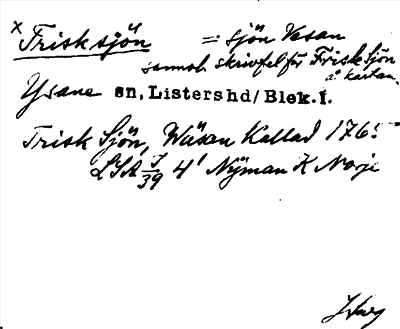 x Frisksjön = sjön Vesan
sannol. skrivfel för Frisk Sjön
å kartan.
Ysane sn, Listershd/Blek.l.
Frisk Sjön, Wäsan Kallad 1765
LSA J/39 4¹ Nyman K Norje